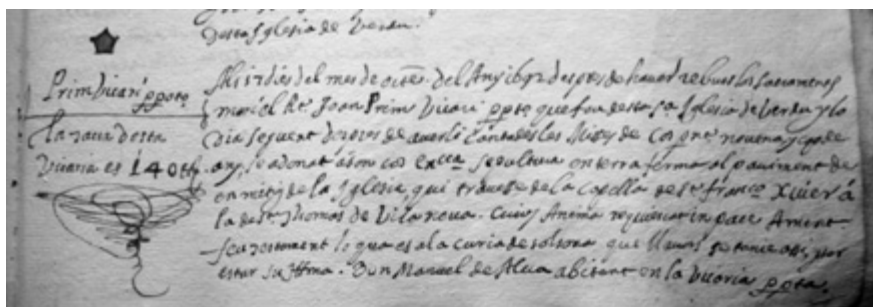 Desta Iglesia de Verdu.
Prim Vicari ppt.
la xava desta
Vicaria es 140 ℔
Als 17 dies del mes de octe. del Any 1692 despres de haver rebuts los sacraments
mori el Rt. Joan Prim Vicari ppt. que fou desta sa. Iglesia de Verdu y lo
Dia seguent despres de averli cantades les Misses de Cos pnt. novena y cap de
any, se a donat a son cos ecca. sepultura en terra ferma al paviment de
en mitg de la Iglesia qui travesse de la Capella de St. franco. Xuier á
la de St. Thomas de Vilanova. Cuius Anima requiescat in pace Ament.
feu testament lo qual es a la curia de solsona que llavors
estar su Illma. Don Manuel de Alva abitant en la Vicaria ppta.